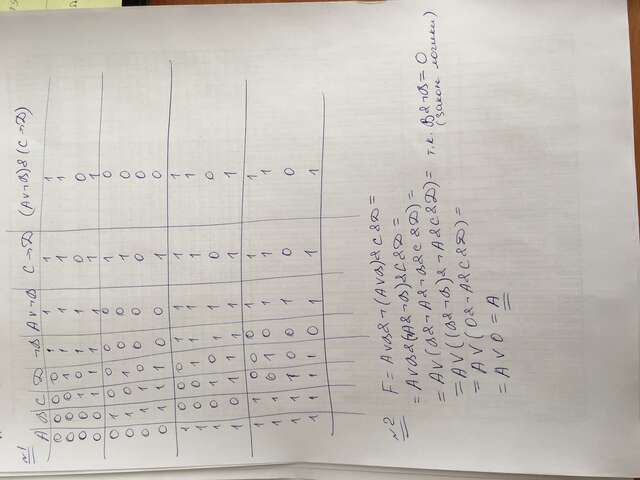 №1
A B C D ¬B A∨¬B C→D (A∨¬B)&(C→D)
0 0 0 0 1 1 1 1
0 0 0 1 1 1 1 1
0 0 1 0 1 1 0 0
0 0 1 1 1 1 1 1
0 1 0 0 0 0 1 0
0 1 0 1 0 0 1 0
0 1 1 0 0 0 0 0
0 1 1 1 0 0 1 0
1 0 0 0 1 1 1 1
1 0 0 1 1 1 1 1
1 0 1 0 1 1 0 0
1 0 1 1 1 1 1 1
1 1 0 0 0 1 1 1
1 1 0 1 0 1 1 1
1 1 1 0 0 1 0 0
1 1 1 1 0 1 1 1
№2 F = A∨B&¬(A∨B)&C&D =
= A∨B&(¬A&¬B)&C&D =
= A∨(B&¬A&¬B&C&D) =
= A∨((B&¬B)&¬A&C&D) = т.к. B&¬B = 0
(закон логики)
= A∨(0&¬A&C&D) =
= A∨0 = A